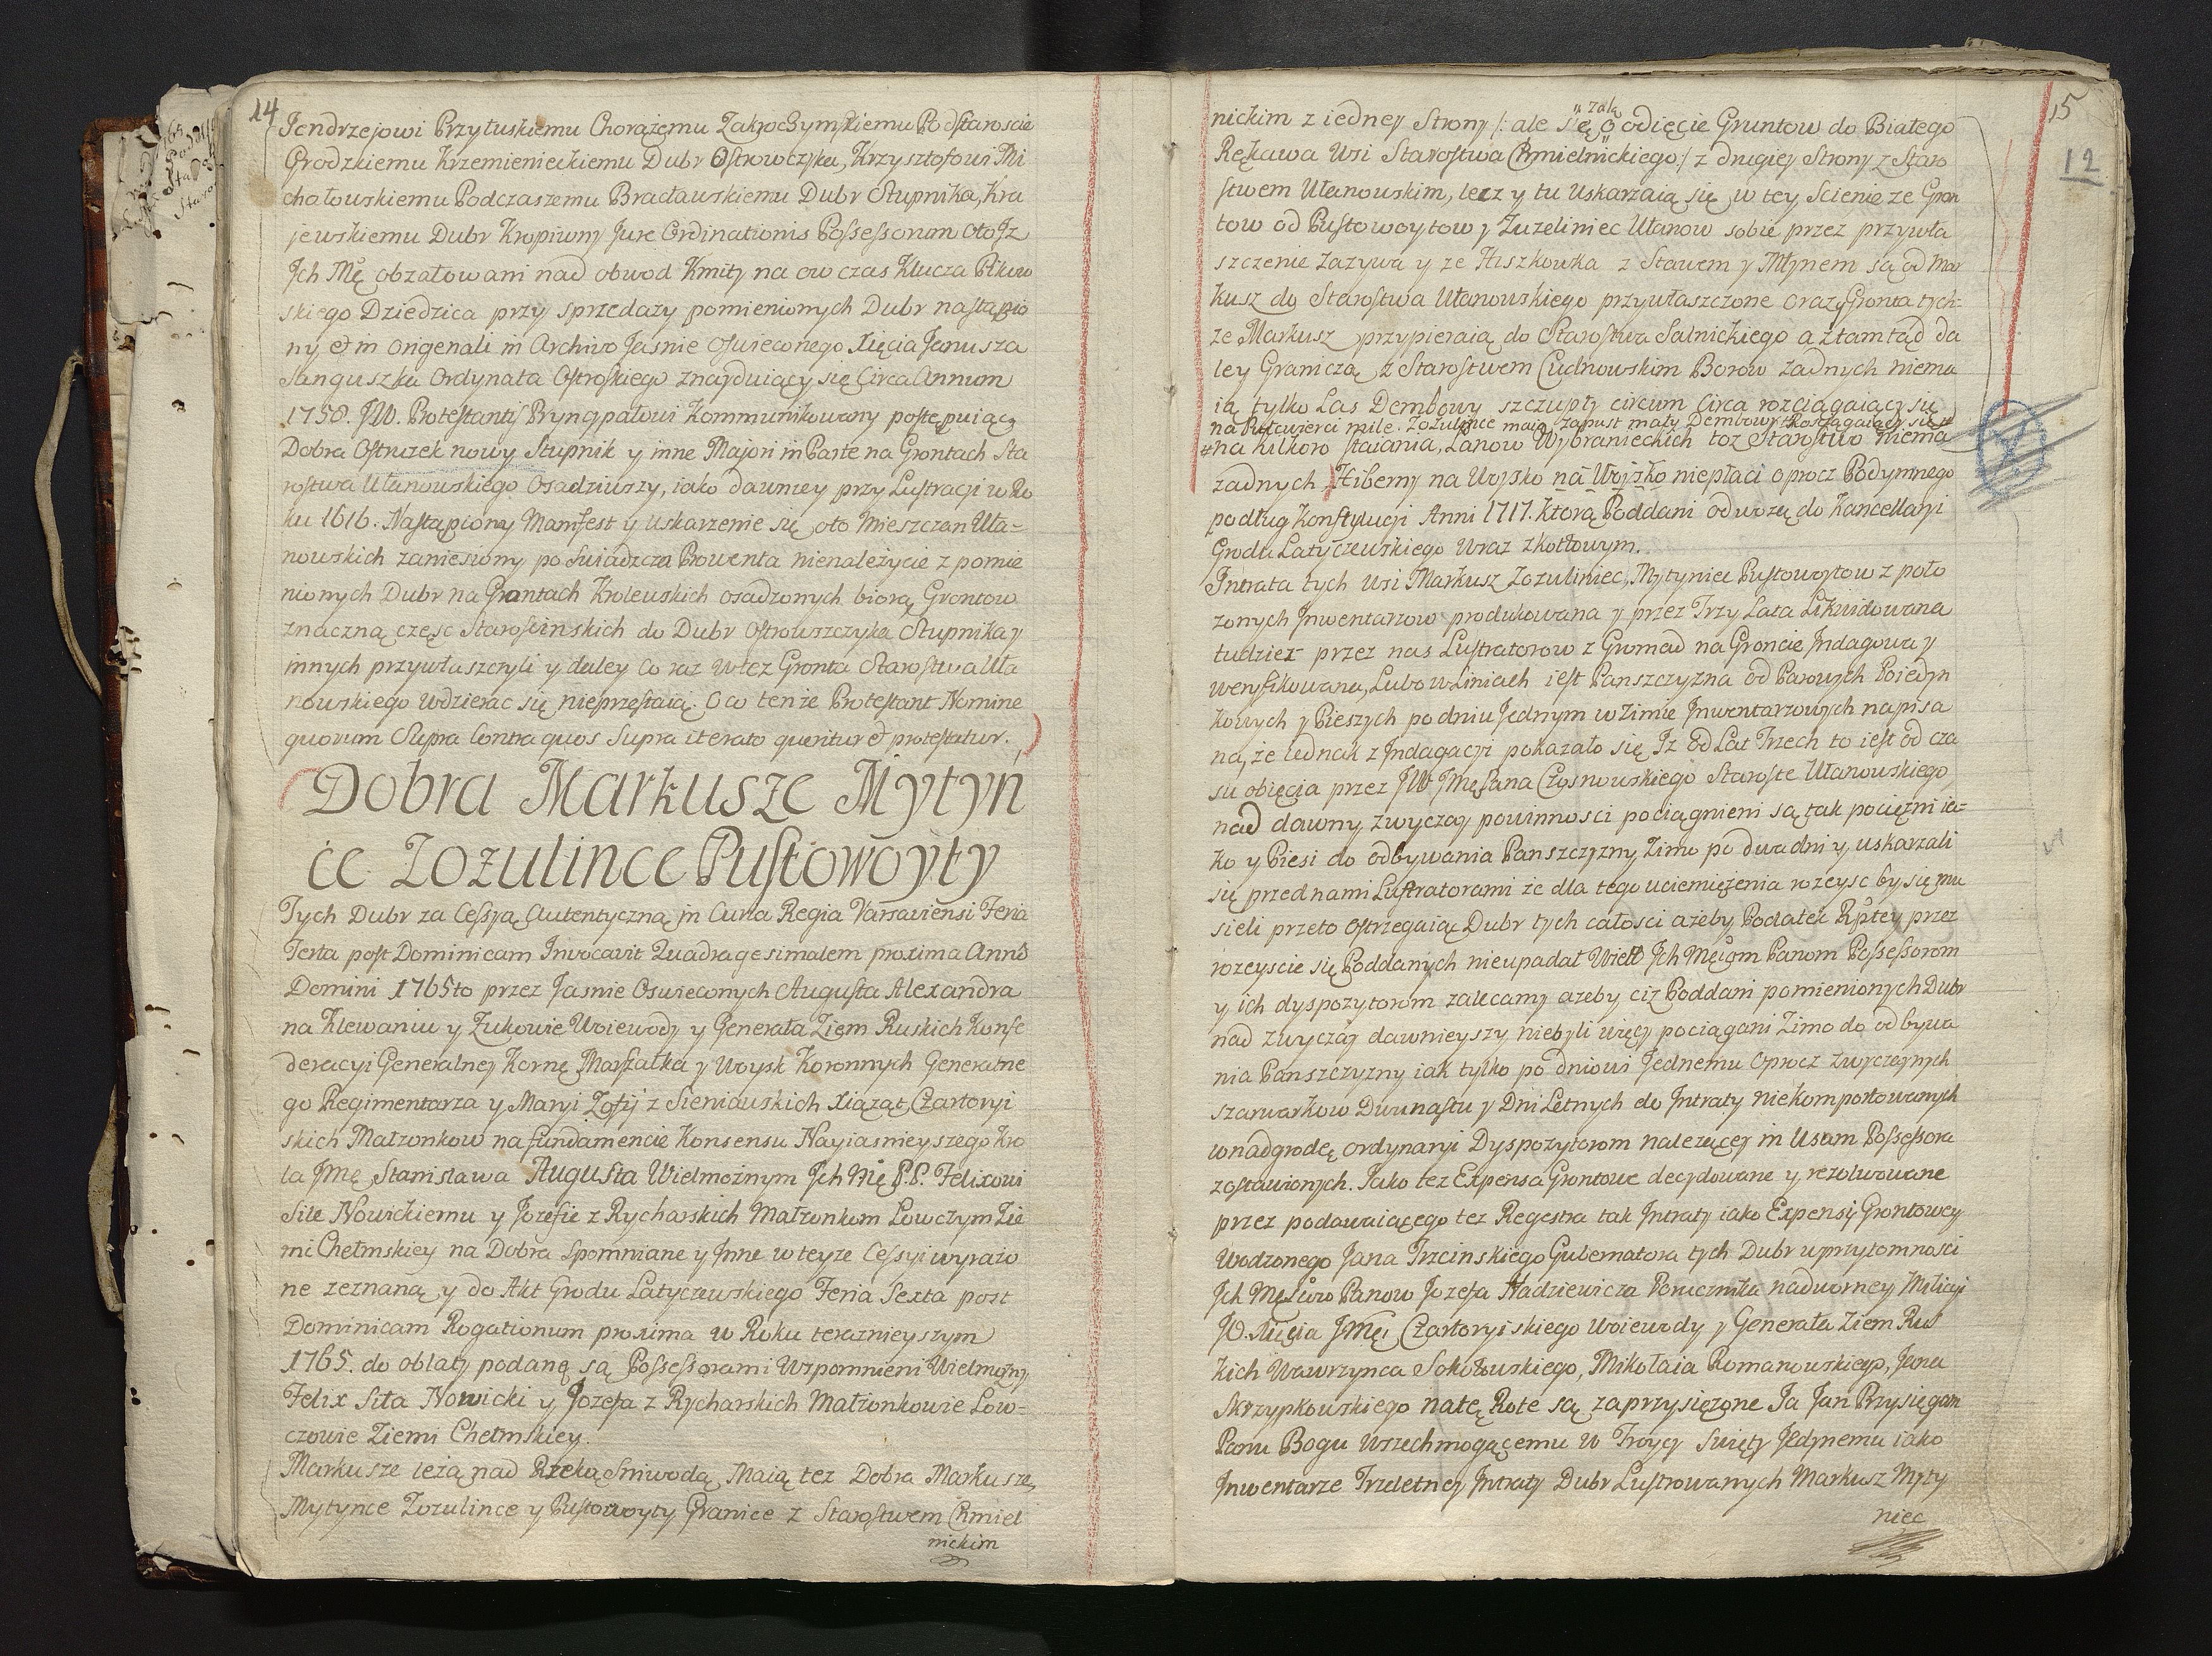 14
Jendrzejowi Przyłuskiemu Chorążemu Zakroczymskiemu Podstaroscie
Grodzkiemu Krzemienieckiemu Dubr Ostrowczyka, Krzysztofowi Mi
chałowskiemu Podczaszemu Bracławskiemu Dubr Stupnika, Kra
jewskiemu Dubr Kropiwny Jure Ordinationis Possessorum oto Jz
Jch Mę obzałowani nad obwod Kmity na ow czas Klucza Pikow
skiego Dziedzica przy sprzedaży pomienionych Dubr nastąpio
ny et in origenali in Archivo Jasnie Oswieconego Xięcia Janusza
Sanguszka Ordynata Ostroskiego znayduiący się Circa Annum
1750. JW. Protestantis Pryncypałowi Kommunikowany postępuiąc
Dobra Ostruzek nowy Stupnik y inne Majori in Parte na Grontach Sta
rostwa Ułanowskiego Osadziwszy, iako dawniey przy Lustracji w Ro
ku 1616. Nastąpiony Manifest y uskarzenie się oto Mieszczan Uła=
nowskich zaniesiony poswiadcza Prowenta nienależycie z pomie
nionych Dubr na Grontach Krolewskich osadzonych biorą, Grontow
znaczną częsc Staroscinskich do Dubr Ostrowszczyka Stupnika y
innych przywłaszczyli y daley co raz w też Gronta Starostwa Uła
nowskiego wdzierac się nieprzestaią. O co tenże Protestant Nomine
quorum Supra Contra quos Supra iterato queritur et protestatur.
Dobra Markusze Mytyń
ce Zozulince Pustowoyty
Tych Dubr za Cessyą Autentyczną in Curia Regia Varsaviensi Feria
Tertia post Dominicam Invocavit Quadragesimalem proxima Anno
Domini 1765to przez Jasnie Oswieconych Augusta Alexandra
na Klewaniu y Zukowie Woiewody y Generała Ziem Ruskich Konfe
deracyi Generalney Kornę Marszałka y Woysk Koronnych Generalne
go Regimentarza y Maryi Zofij z Sieniawskich Xiąząt Czartoryi
skich Małzonkow na fundamencie Konsensu Nayiasnieyszego Kro
la Jmę Stanisława Augusta Wielmożnym Jch Mę P.P. Felixowi
Sile Nowickiemu y Jozefie z Rycharskich Małżonkom Łowczym Zie
mi Chełmskiey na Dobra Spomniane y Jnne w teyze Cessyi wyrażo
ne zeznaną y do Akt Grodu Latyczewskiego Feria Sexta post
Dominicam Rogationum proxima w Roku teraznieyszym
1765. do oblaty podanę są Possessorami Wspomnieni Wielmożny
Felix Siła Nowicki y Jozefa z Rycharskich Małżonkowie Łow=
czowie Ziemi Chełmskiey.
Markusze leżą nad Rzeką Sniwodą, Maią też Dobra Markusze,
Mytynce Zozulince y Pustowoyty Granice z Starostwem Chmiel
nickim
15
12
nickim z iedney Strony /: ale się zalą o odięcie Gruntow do Białego
Rękawa Wsi Starostwa Chmielnickiego :/ z drugiey Strony z Staro
stwem Ułanowskim, lecz y tu Uskarzaią się w tey Scienie ze Gron
tow od Pustowoytow y Zuzeliniec Ułanow sobie przez przywła
szczenie Zazywa y ze Hiszkowka z Stawem y Młynem są od Mar
kusz do Starostwa Ułanowskiego przywłaszczone oraz Gronta tych=
że Markusz przypieraią do Starostwa Salnickiego a ztamtąd da
ley Graniczą z Starostwem Cudnowskim Borow żadnych niema
ią tylko Las Dembowy szczupły circum Circa rozciągaiący się
na Pułćwierci mile. Zozulince maią Zapust mały Dembowy Rosciągaiący się #
# na kilkoro staiania, Łanow Wybranieckich toz Starostwo niema
żadnych Hiberny na Woysko na Woysko niepłaci oprocz Podymnego
podług Konstytucyi Anni 1717. ktorą Poddani odwożą do Kancellaryi
Grodu Latyczewskiego Wraz z kotłowym.
Jntrata tych wsi Markusz Zozuliniec, Mytyniec Pustowoytow z poło
zonych Jnwentarzow produkowana y przez Trzy Lata Likwidowana
tudzież przez nas Lustratorow z Gromad na Groncie Jndagowa y
weryfikowana, Lubo w Liniach iest Panszczyzna od Parowych Poiedyn
kowych y Pieszych po dniu Jednym w Zimie Jnwentarzowych napisa
na, że iednak z Jndagacyi pokazało się Jz od Lat Trzech to iest od cza
su obięcia przez JW JMę Pana Czosnowskiego Staroste Ułanowskiego
nad dawny zwyczay powinnosci pociągnieni są tak pociężni ia=
ko y Piesi do odbywania Panszczyzny Zimo po dwa dni y uskarzali
się przed nami Lustratorami że dla tego uciemiężenia rozeysc by się mu
sieli przeto ostrzegaiąc Dubr tych całosci ażeby Podatek Rptey przez
rozeyscie się Poddanych nieupadał Wiel Jch Męiom Panom Possessorom
y ich dyspozytorom zalecamy azeby ciz Poddani pomienionych Dubr
nad zwyczay dawnieyszy niebyli więcy pociągani Zimo do odbywa
nia Panszczyzny iak tylko po dniowi Jednemu Oprocz zwyczaynych
szarwarkow Dwunastu y Dni Letnych do Jntraty niekomportowanych
w nadgrodę ordynaryi Dyspozytorom należącey in Usum Possessora
zostawionych. Jako też Expensa Grontowe decydowane y rezolwowane
przez podawaiącego tez Regestra tak Jntraty iako Expensy Grontowey
Urodzonego Jana Trzcinskiego Gubernatora tych Dubr w przytomnosci
Jch Męciow Panow Jozefa Hadziewicza Porucznika nadworney Milicyi
JO. Xięcia JMęi Czartoryiskiego Woiewody y Generała Ziem Rus
kich Wawrzynca Sokołowskiego, Mikołaia Romanowskiego, Jana
Skrzypkowskiego natę Rote są zaprzysiężone Ja Jan Przysięgam
Panu Bogu Wszechmogącemu w Troycy Swięty Jedynemu iako
Jnwentarze Trzeletney Jntraty Dubr Lustrowanych Markusz Myty
niec